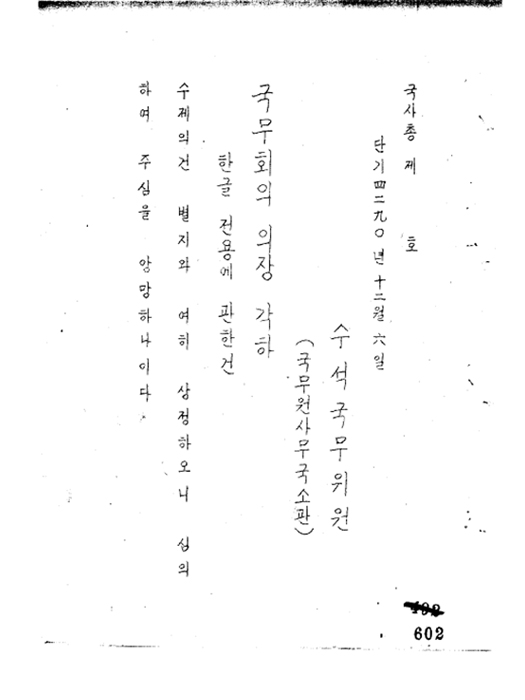 국사총 제 호
단기四二九〇년 十二월 六일
수석국무위원
(국무원사무국소관)
국무회의 의장 각하
한글 전용에 관한건
수제의건 별지와 여히 상정하오니 심의
하여 주심을 앙망하나이다.
602